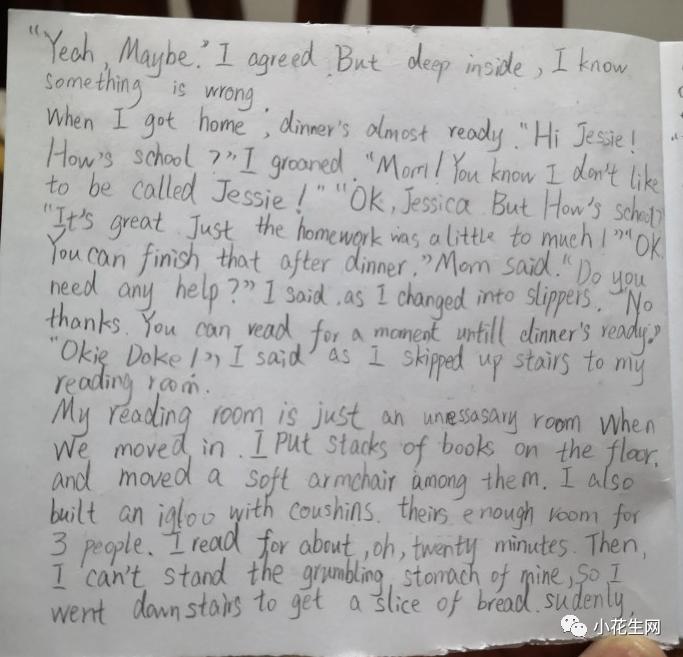 "Yeah, Maybe." I agreed. But deep inside, I know
something is wrong.
When I got home, dinner's almost ready. "Hi Jessie!
How's school?" I groaned. "Mom! You know I don't like
to be called Jessie!" "OK, Jessica. But How's school?
"It's great. Just the homework was a little to much!" "OK.
You can finish that after dinner." Mom said. "Do you
need any help?" I said as I changed into slippers. "No
thanks. You can read for a moment untill dinner's ready."
"Okie Doke!" I said as I skipped up stairs to my
reading room.
My reading room is just an unessasary room when
We moved in. I put stacks of books on the floor,
and moved a soft armchair among them. I also
built an igloo with coushins. theirs enough room for
3 people. I read for about, oh, twenty minutes. Then,
I can't stand the grumbling stomach of mine, so I
went downstairs to get a slice of bread. sudenly,
小花生网